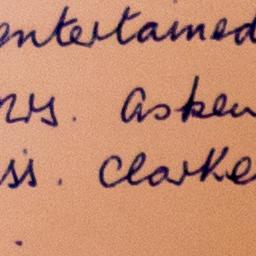 entertained
Mrs. Askew
Miss. Clarke
.